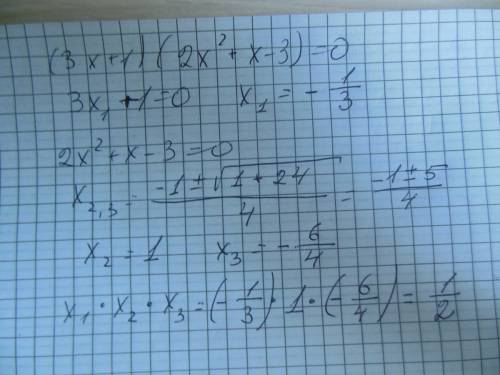 (3x+1)(2x²+x-3)=0
3x₁+1=0 x₁=-1/3
2x²+x-3=0
x₂,₃=(-1±√(1+24))/4=(-1±5)/4
x₂=1 x₃=-6/4
x₁·x₂·x₃=(-1/3)·1·(-6/4)=1/2